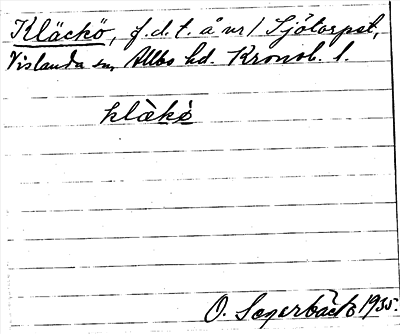 Kläckö, f.d.t. å nr 1 Sjötorpst,
Vislanda sn, Allbo hd. Kronob. l.
klækö
O. Sagerbäck 1935.